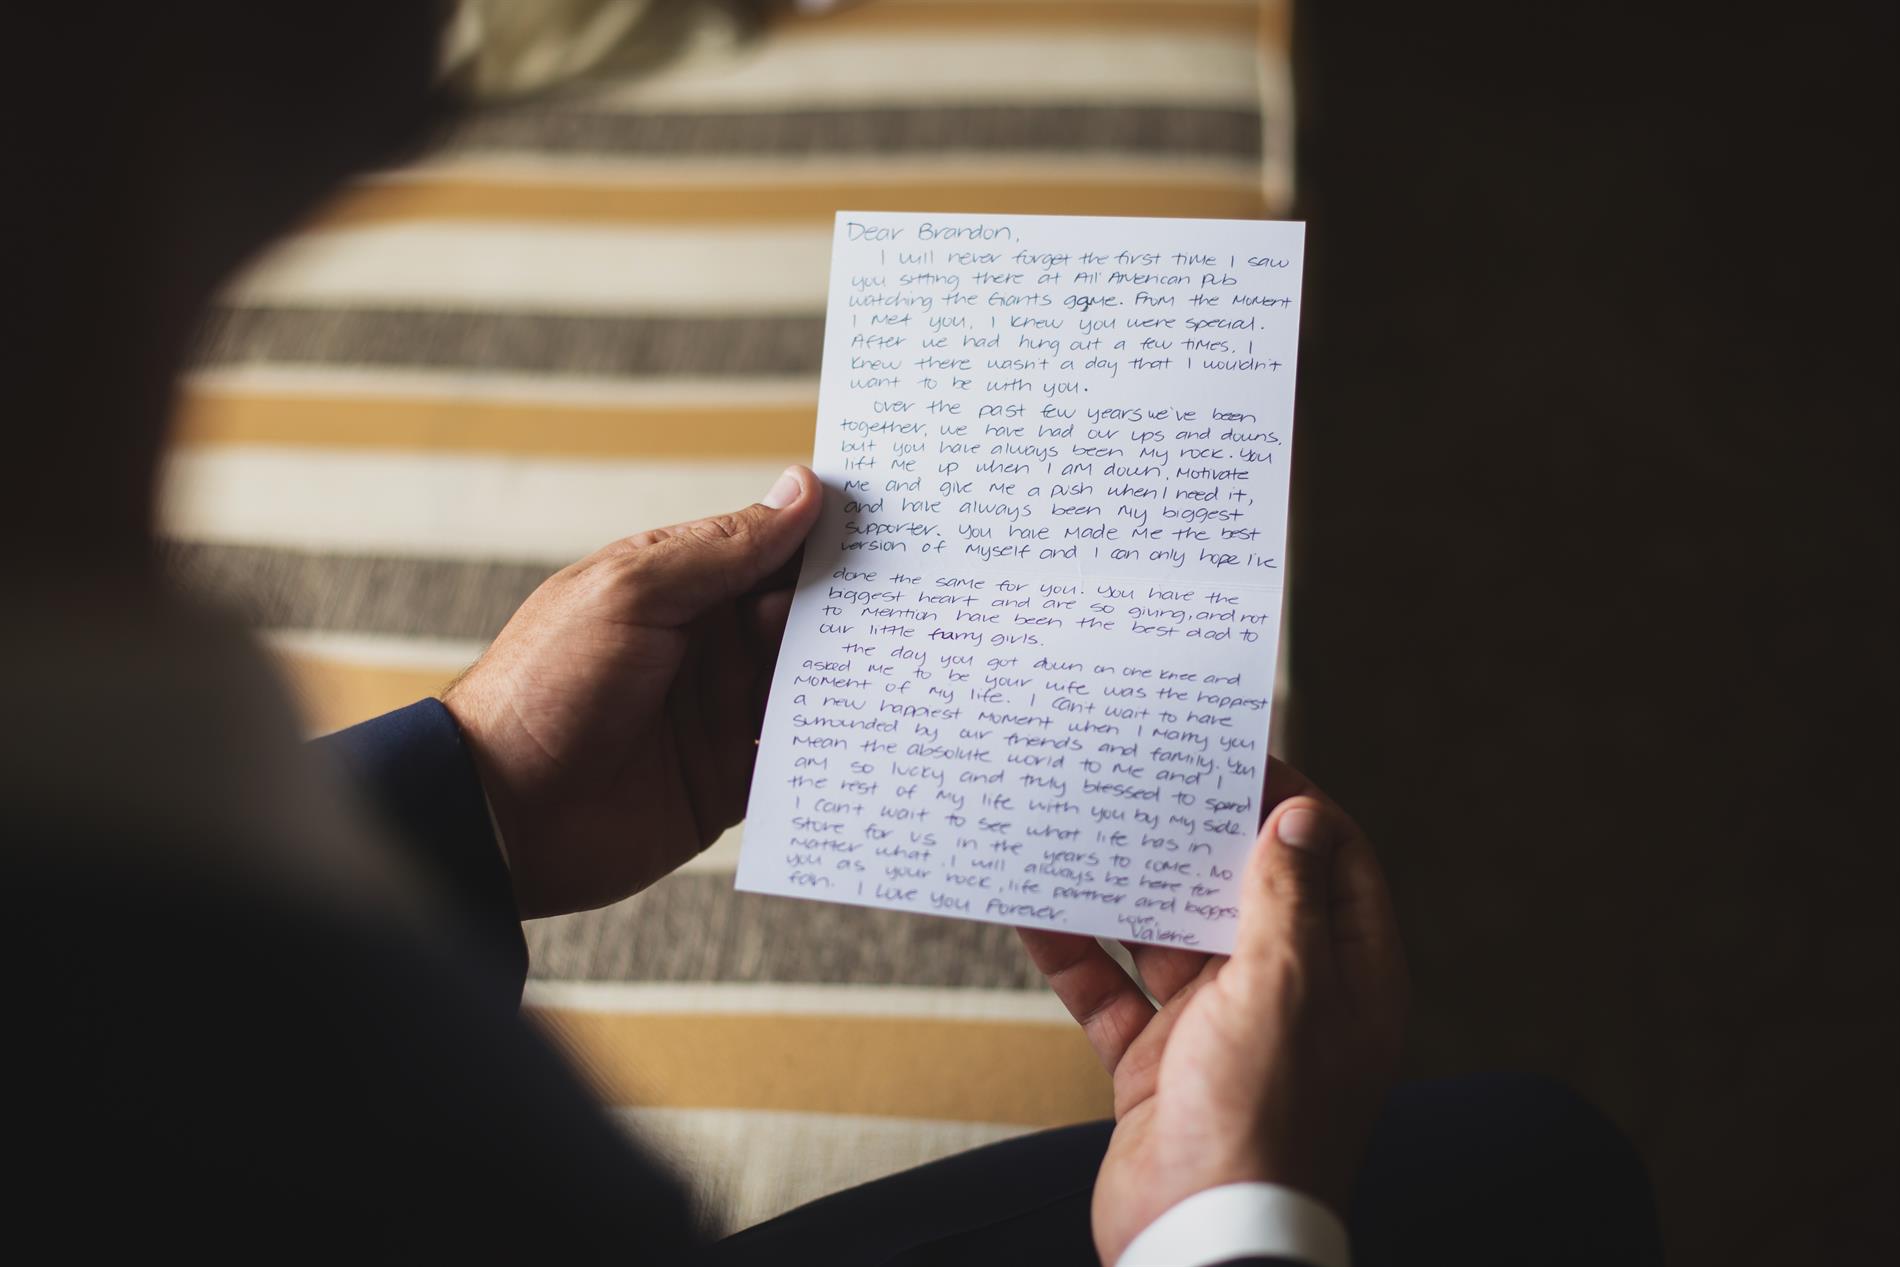 Dear Brandon,
I will never forget the first time I saw
you sitting there at All American Pub
watching the Giants game. From the moment
I met you, I knew you were special.
After we had hung out a few times, I
knew there wasn't a day that I wouldn't
want to be with you.
Over the past few years we've been
together, we have had our ups and downs,
but you have always been my rock. You
lift me up when I am down, motivate
me and give me a push when I need it,
and have always been my biggest
supporter. You have made me the best
version of myself and I can only hope I've
done the same for you. You have the
biggest heart and are so giving, and not
to mention have been the best dad to
our little furry girls.
The day you got down on one knee and
asked me to be your wife was the happiest
moment of my life. I can't wait to have
a new happiest moment when I marry you
surrounded by our friends and family. You
mean the absolute world to me and I
am so lucky and truly blessed to spend
the rest of my life with you by my side.
I can't wait to see what life has in
store for us in the years to come. No
matter what, I will always be here for
you as your rock, life partner and biggest
fan. I love you forever.
Love,
Valerie